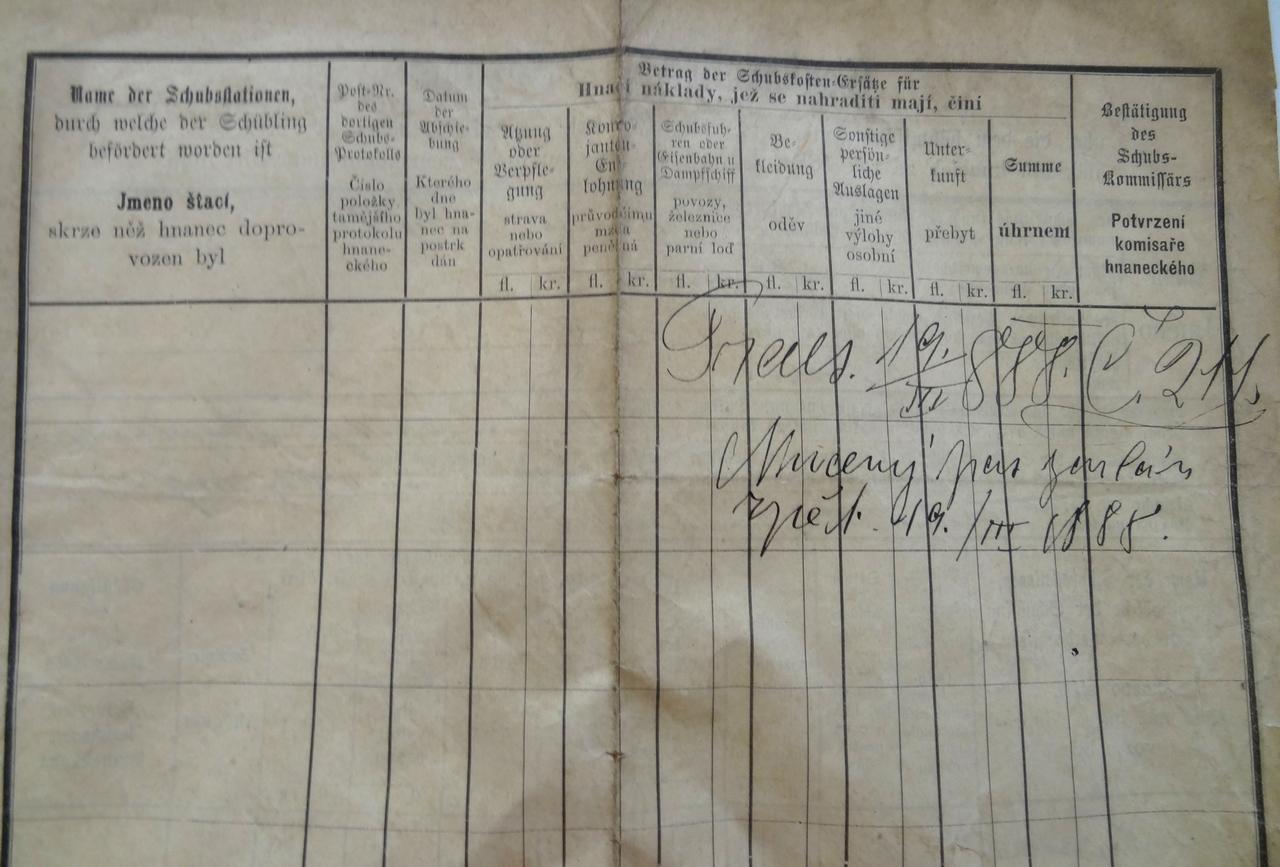 Name der Schubstationen,
durch welche der Schübling
befördert worden ist
Jmeno štací,
skrze něž hnanec dopro-
vozen byl
Post-Nr.
des
dortigen
Schubs-
Protokolls
Číslo
položky
tamějšího
protokolu
hnane-
ckého
Datum
der
Abschie-
bung
Kterého
dne
byl hna-
nec na
postrk
dán
Betrag der Schubskosten-Ersätze für
Hnací náklady, jež se nahraditi mají, činí
Atzung
oder
Verpfle-
gung
strava
nebo
opatřování
fl. kr.
Konvo-
janten-
Ent-
lohnung
průvodčímu
mzda
peněžná
fl. kr.
Schubsfuh-
ren oder
Eisenbahn u
Dampfschiff
povozy,
železnice
nebo
parní loď
fl. kr.
Be-
kleidung
oděv
fl. kr.
Sonstige
persön-
liche
Auslagen
jiné
výlohy
osobní
fl. kr.
Unter-
kunft
přebyt
fl. kr.
Summe
úhrnem
fl. kr.
Bestätigung
des
Schubs-
Kommissärs
Potvrzení
komisaře
hnaneckého
19./III 888. Č. 211.
Nucený pas zaslán
zpět. 19./III 1888.